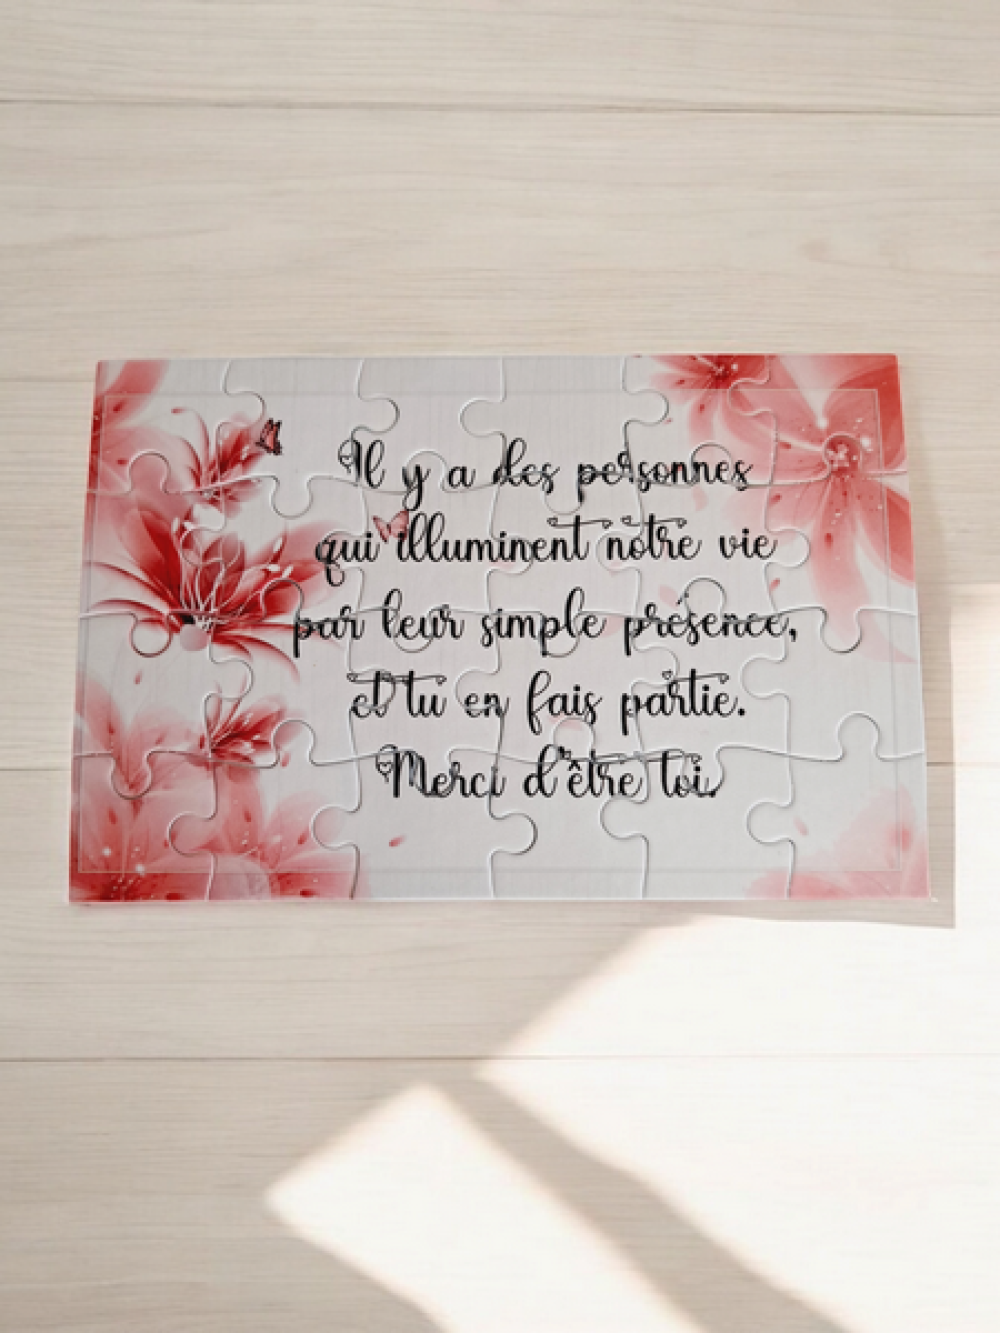 Il y a des personnes
qui illuminent notre vie
par leur simple présence,
et tu en fais partie.
Merci d'être toi.